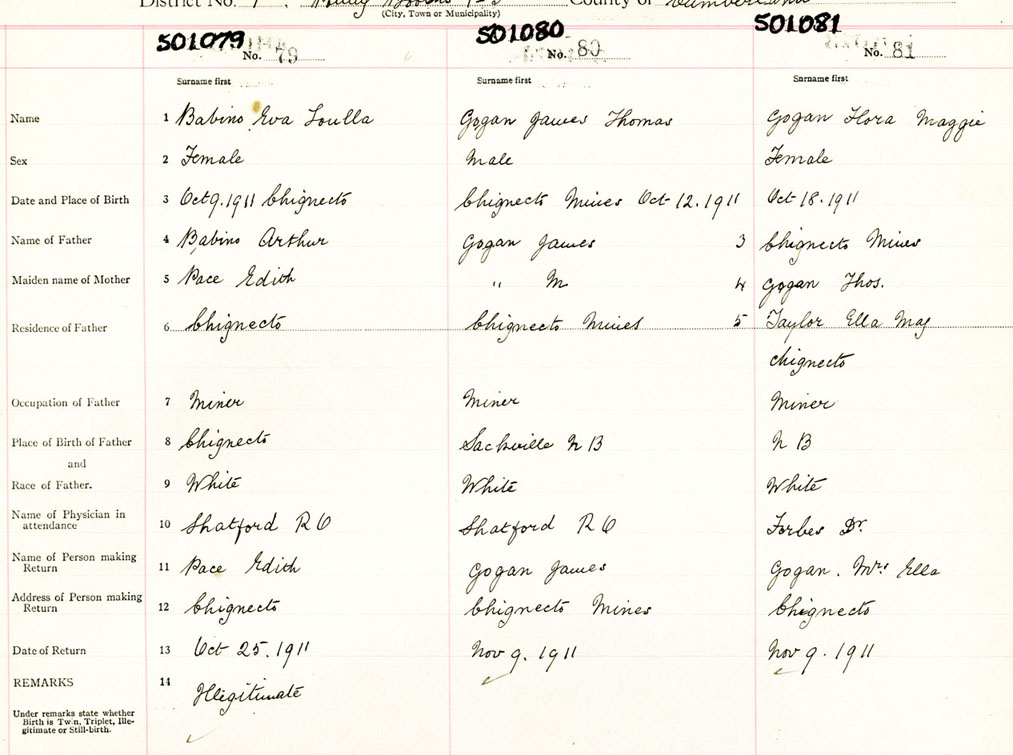 District No. 1, County of Cumberland
(City, Town or Municipality)
501079 501080 501081
No. 79 No. 80 No. 81
Surname first Surname first Surname first
Name 1 Babino Eva Louella Gogan James Thomas Gogan Flora Maggie
Sex 2 Female Male Female
Date and Place of Birth 3 Oct 9. 1911 Chignecto Chignecto Mines Oct 12. 1911 Oct 18. 1911
Name of Father 4 Babino Arthur Gogan James 3 Chignecto Mines
Maiden name of Mother 5 Pace Edith " M 4 Gogan Thos.
Residence of Father 6 Chignecto Chignecto Mines 5 Taylor Ella May
Chignecto
Occupation of Father 7 Miner Miner Miner
Place of Birth of Father 8 Chignecto Sackville N B N B
and
Race of Father. 9 White White White
Name of Physician in
attendance 10 Shatford R C Shatford R C Forbes Dr.
Name of Person making
Return 11 Pace Edith Gogan James Gogan. Mrs Ella
Address of Person making
Return 12 Chignecto Chignecto Mines Chignecto
Date of Return 13 Oct 25. 1911 Nov 9. 1911 Nov 9. 1911
REMARKS 14 Illegitimate
Under remarks state whether
Birth is Twin, Triplet, Ille-
gitimate or Still-birth.